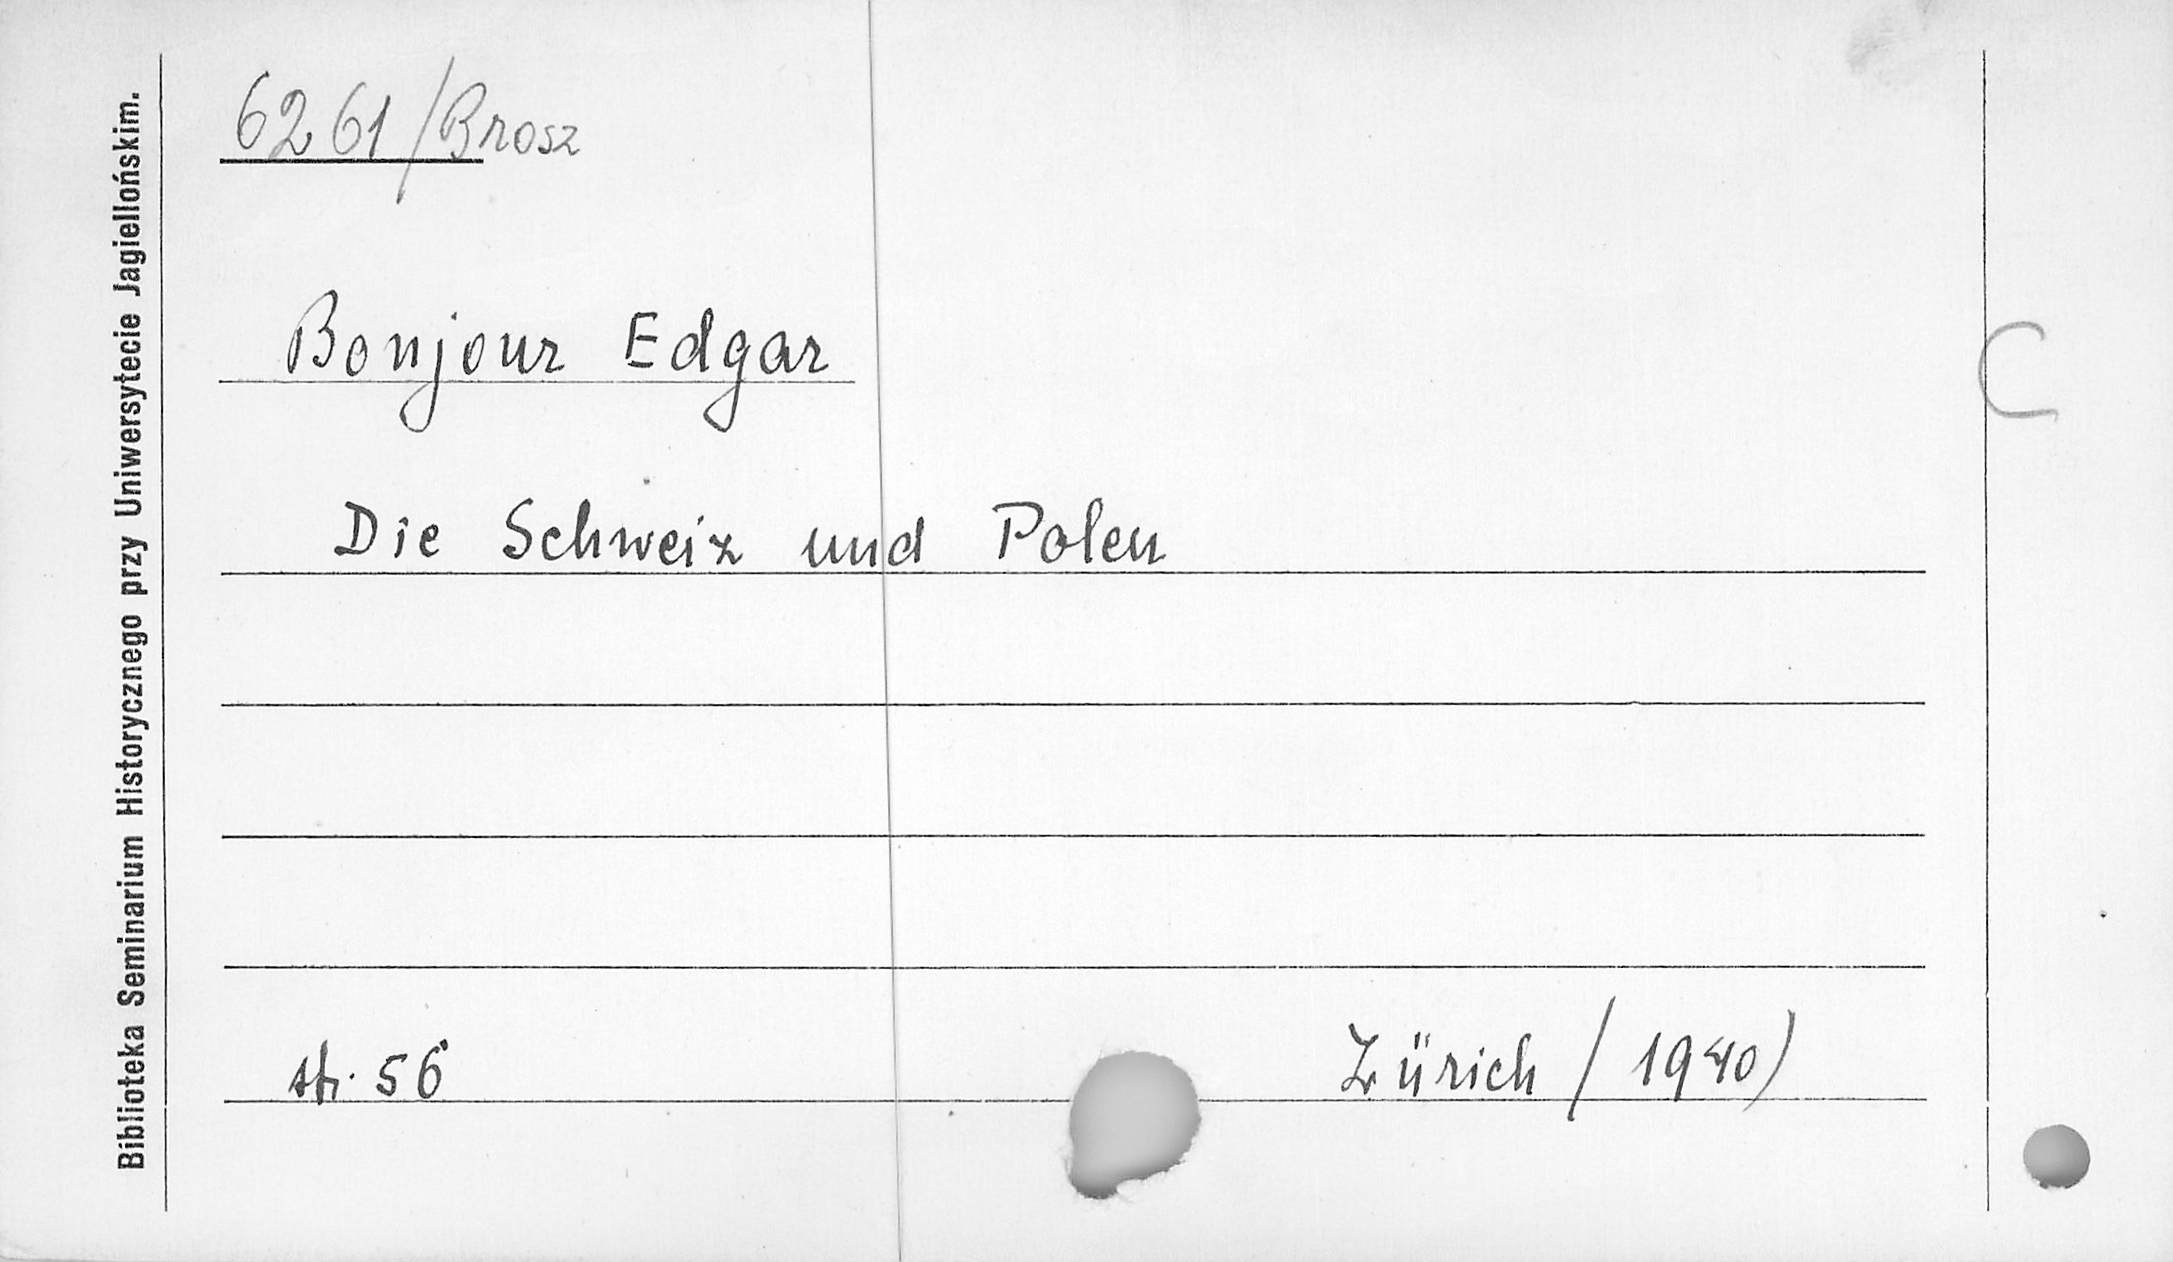 6261/Brosz
Bonjour Edgar
C
Die Schweiz und Polen
str. 56
Zürich /1940)
Biblioteka Seminarium Historycznego przy Uniwersytecie Jagiellońskim.